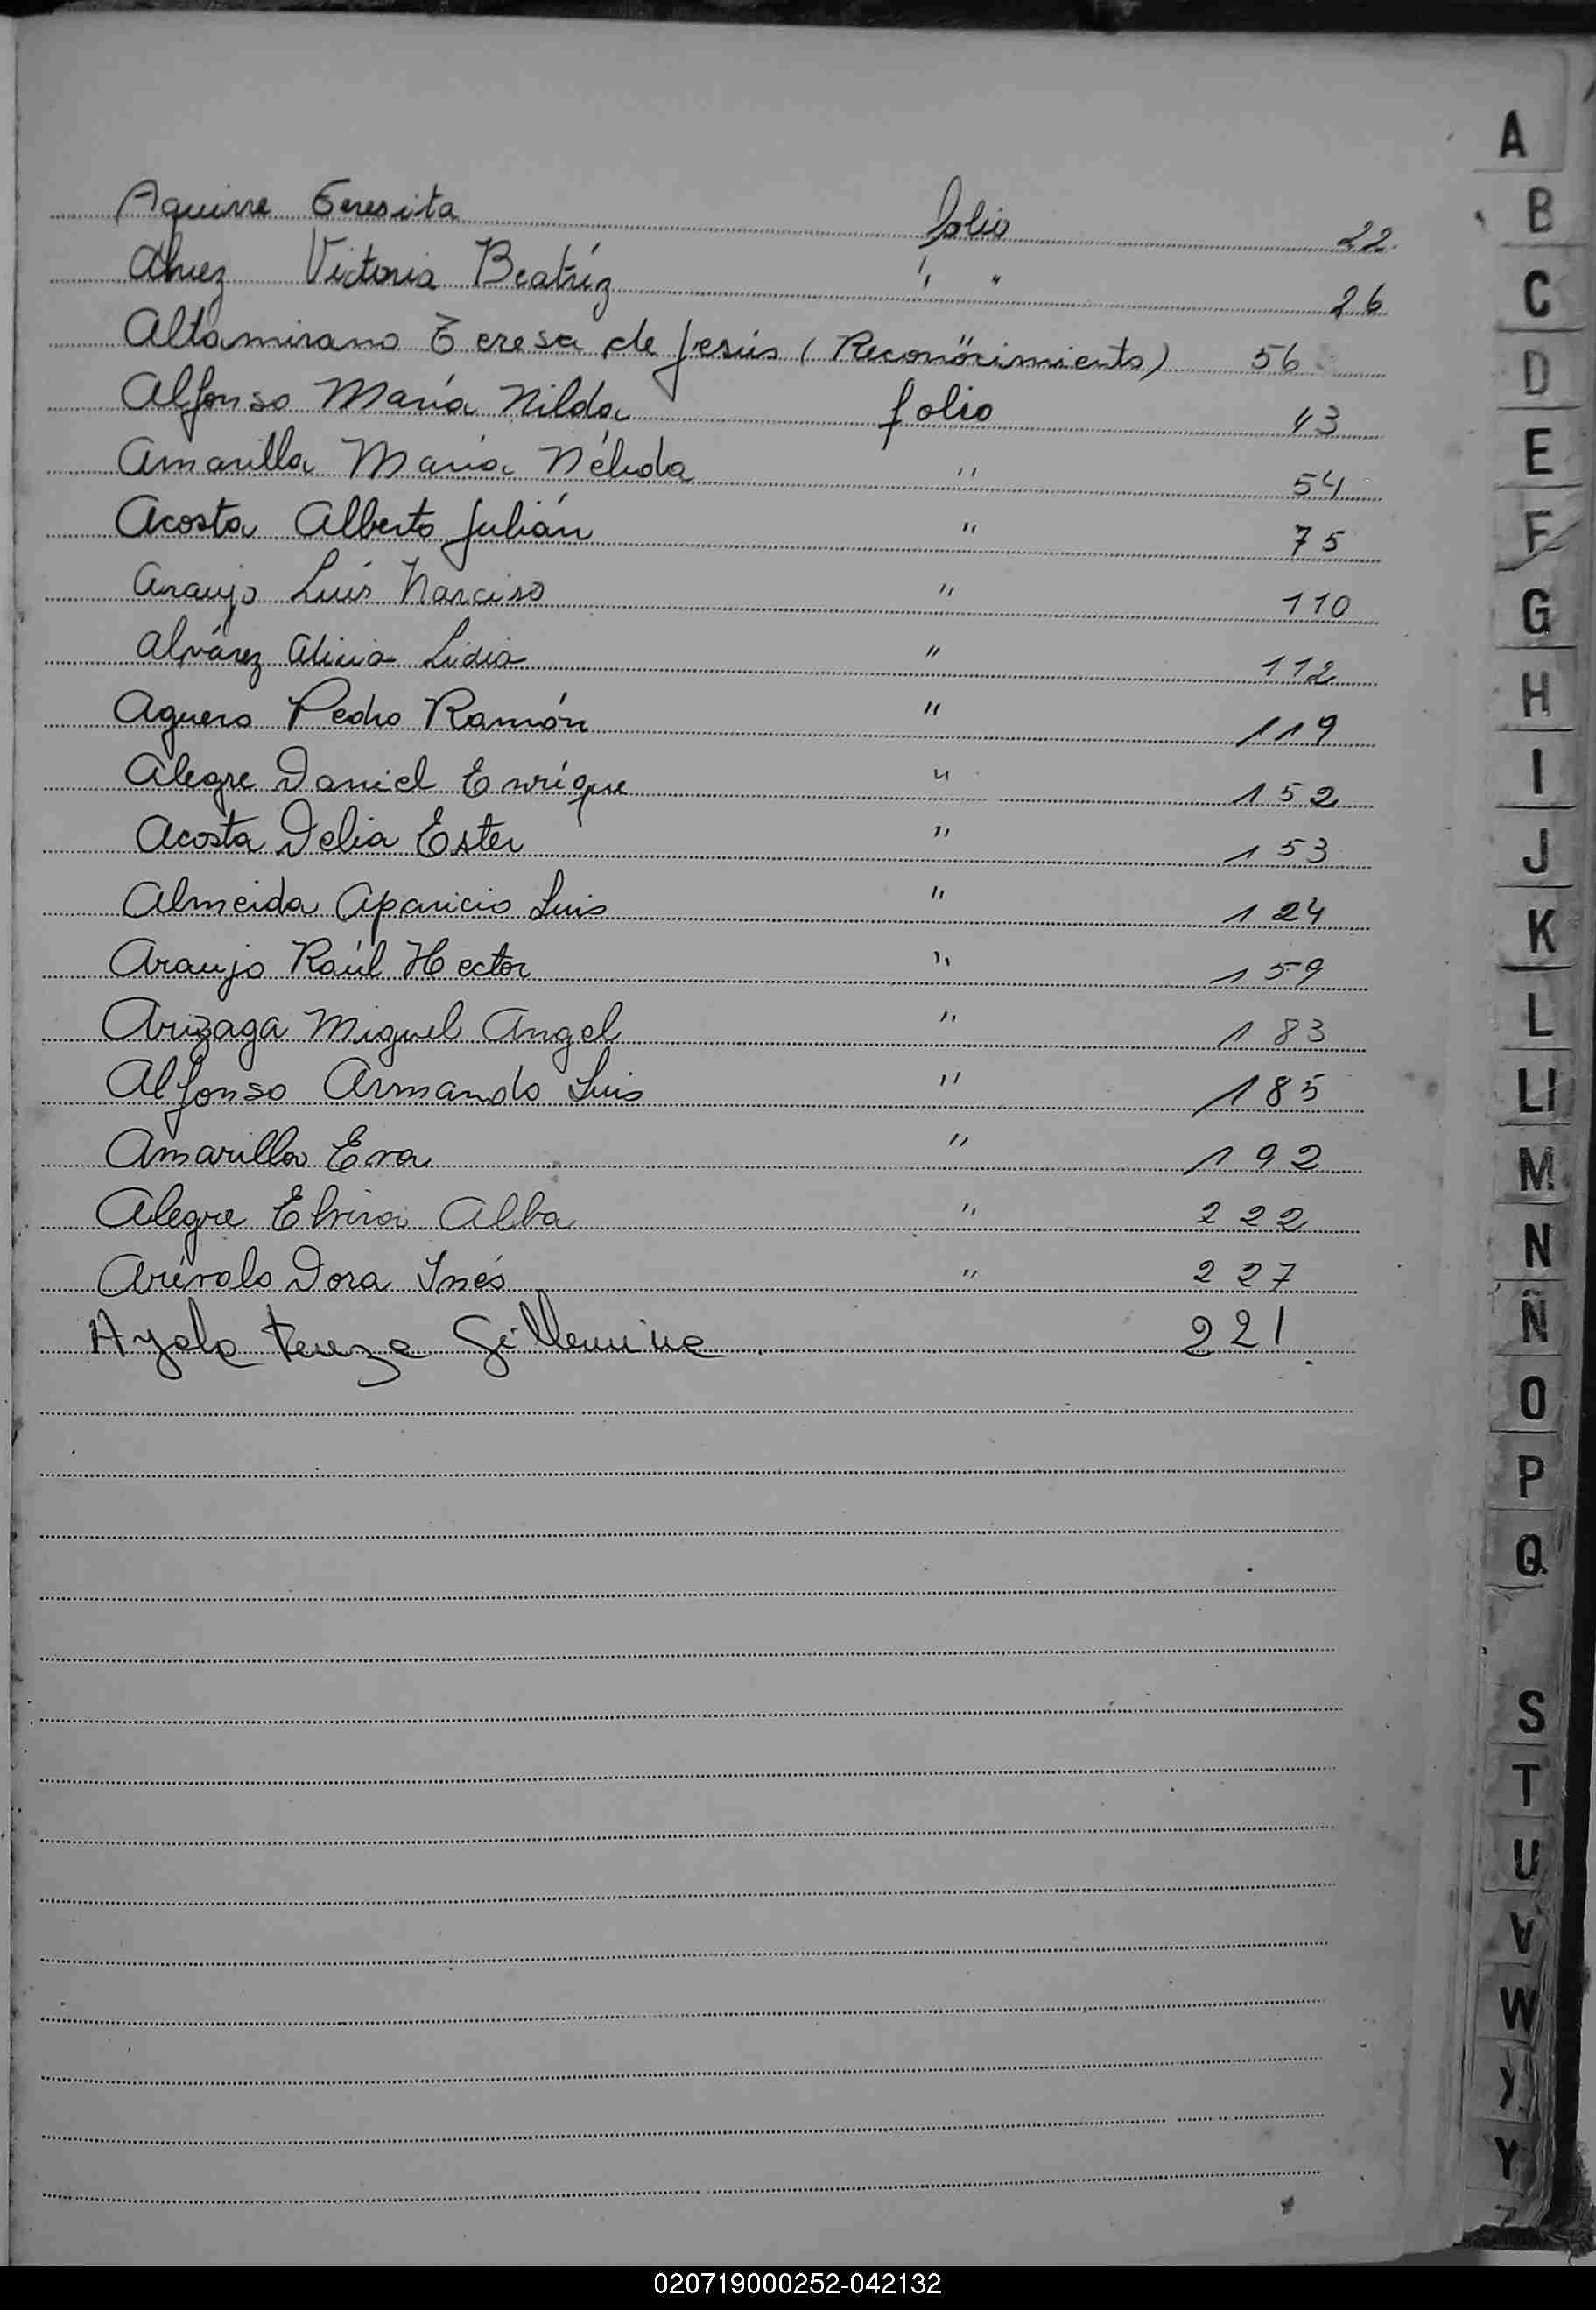 Aguirre Teresita folio 22
Alvez Victoria Beatríz " " 26
Altamirano Teresa de Jesús (Reconocimiento) 56
Alfonso María Nilda folio 43
Amarilla María Nélida " 54
Acosta Alberto Julián " 75
Araujo Luís Narciso " 110
Alvárez Alicia Lidia " 112
Aguero Pedro Ramón " 119
Alegre Daniel Enríque " 152
Acosta Delia Ester " 153
Almeida Aparicio Luis " 124
Araujo Raúl Hector " 159
Arizaga Miguel Angel " 183
Alfonso Armando Luis " 185
Amarilla Eva " 192
Alegre Elvira Alba " 222
Arévalo Dora Inés " 227
Ayala tereza Gillermina 221
A
B
C
D
E
F
G
H
I
J
K
L
Ll
M
N
Ñ
O
P
Q
S
T
U
V
W
Y
020719000252-042132